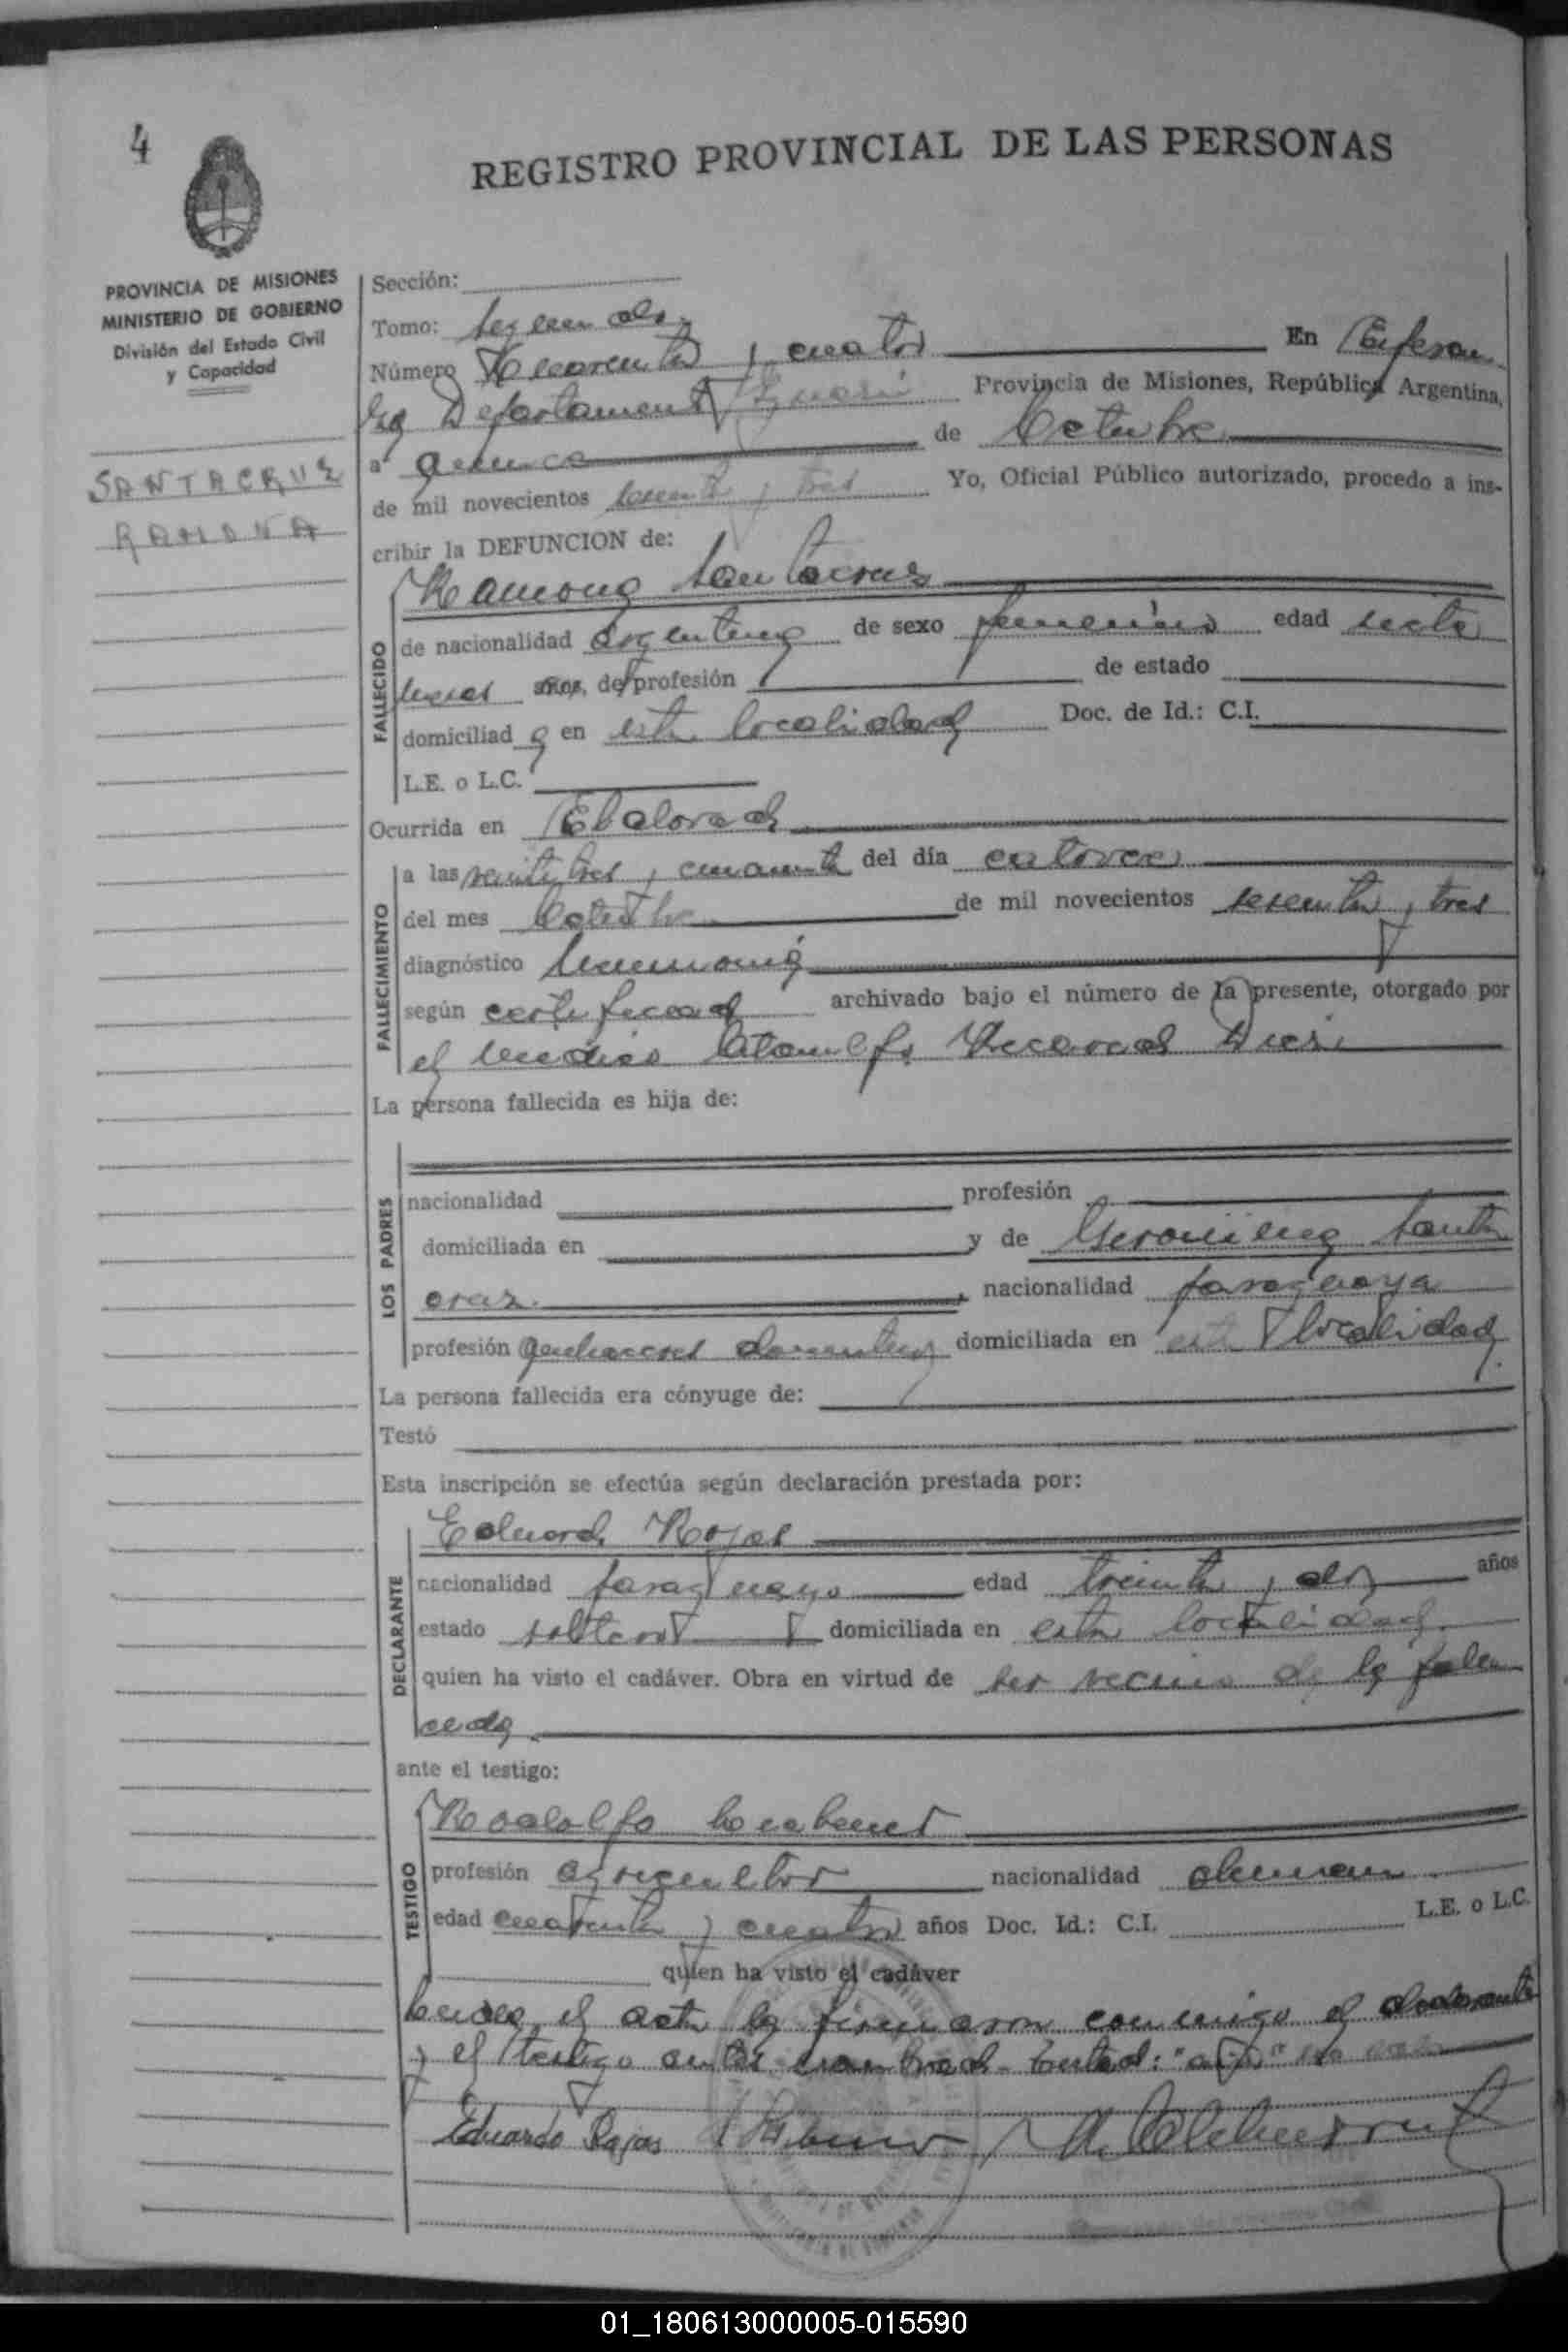 4
REGISTRO PROVINCIAL DE LAS PERSONAS
PROVINCIA DE MISIONES
MINISTERIO DE GOBIERNO
División del Estado Civil
y Capacidad
SANTACRUZ
RAMONA
Sección:
Tomo: segundo
Número Cuarenta y cuatro En Esperan
za Departamento Iguazú Provincia de Misiones, República Argentina,
a quince de Octubre
de mil novecientos sesenta y tres Yo, Oficial Público autorizado, procedo a ins-
cribir la DEFUNCION de:
Ramona Santacruz
FALLECIDO
de nacionalidad argentina de sexo femenino edad siete
meses años, de profesión de estado
domiciliad a en esta localidad Doc. de Id.: C.I.
L.E. o L.C.
Ocurrida en Eldorado
FALLECIMIENTO
a las veintitres y cuarenta del día catorce
del mes Octubre de mil novecientos sesenta y tres
diagnóstico Neumonía
según certificado archivado bajo el número de la presente, otorgado por
el medico
La persona fallecida es hija de:
LOS PADRES
nacionalidad profesión
domiciliada en y de Geronima Santa
cruz. nacionalidad paraguaya
profesión quehaceres domesticos domiciliada en esta localidad
La persona fallecida era cónyuge de:
Testó
Esta inscripción se efectúa según declaración prestada por:
DECLARANTE
Eduardo Rojas
nacionalidad paraguayo edad treinta y dos años
estado soltero domiciliada en esta localidad.
quien ha visto el cadáver. Obra en virtud de ser vecino de la falle
cida
ante el testigo:
TESTIGO
Rodolfo
profesión agricultor nacionalidad aleman
edad cuarenta y cuatro años Doc. Id.: C.I. L.E. o L.C.
quien ha visto el cadáver
el acta la firmaron conmigo el declarante
y el testigo antes nombrado. Testado: "años" no vale
Eduardo Rojas
01_180613000005-015590